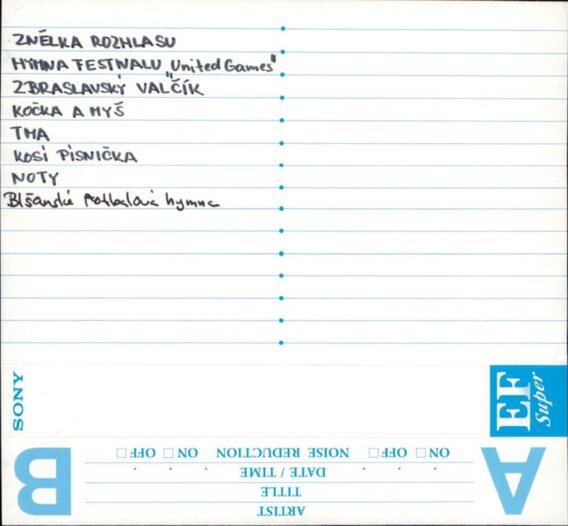 ZNĚLKA ROZHLASU
HYMNA FESTIVALU „United Games"
ZBRASLAVSKÝ VALČÍK
KOČKA A MYŠ
TMA
KOSÍ PÍSNIČKA
NOTY
Blšanská fotbalová hymna
SONY
EF
Super
B
A
ON □ OFF □ NOISE REDUCTION ON □ OFF □
DATE / TIME
TITLE
ARTIST